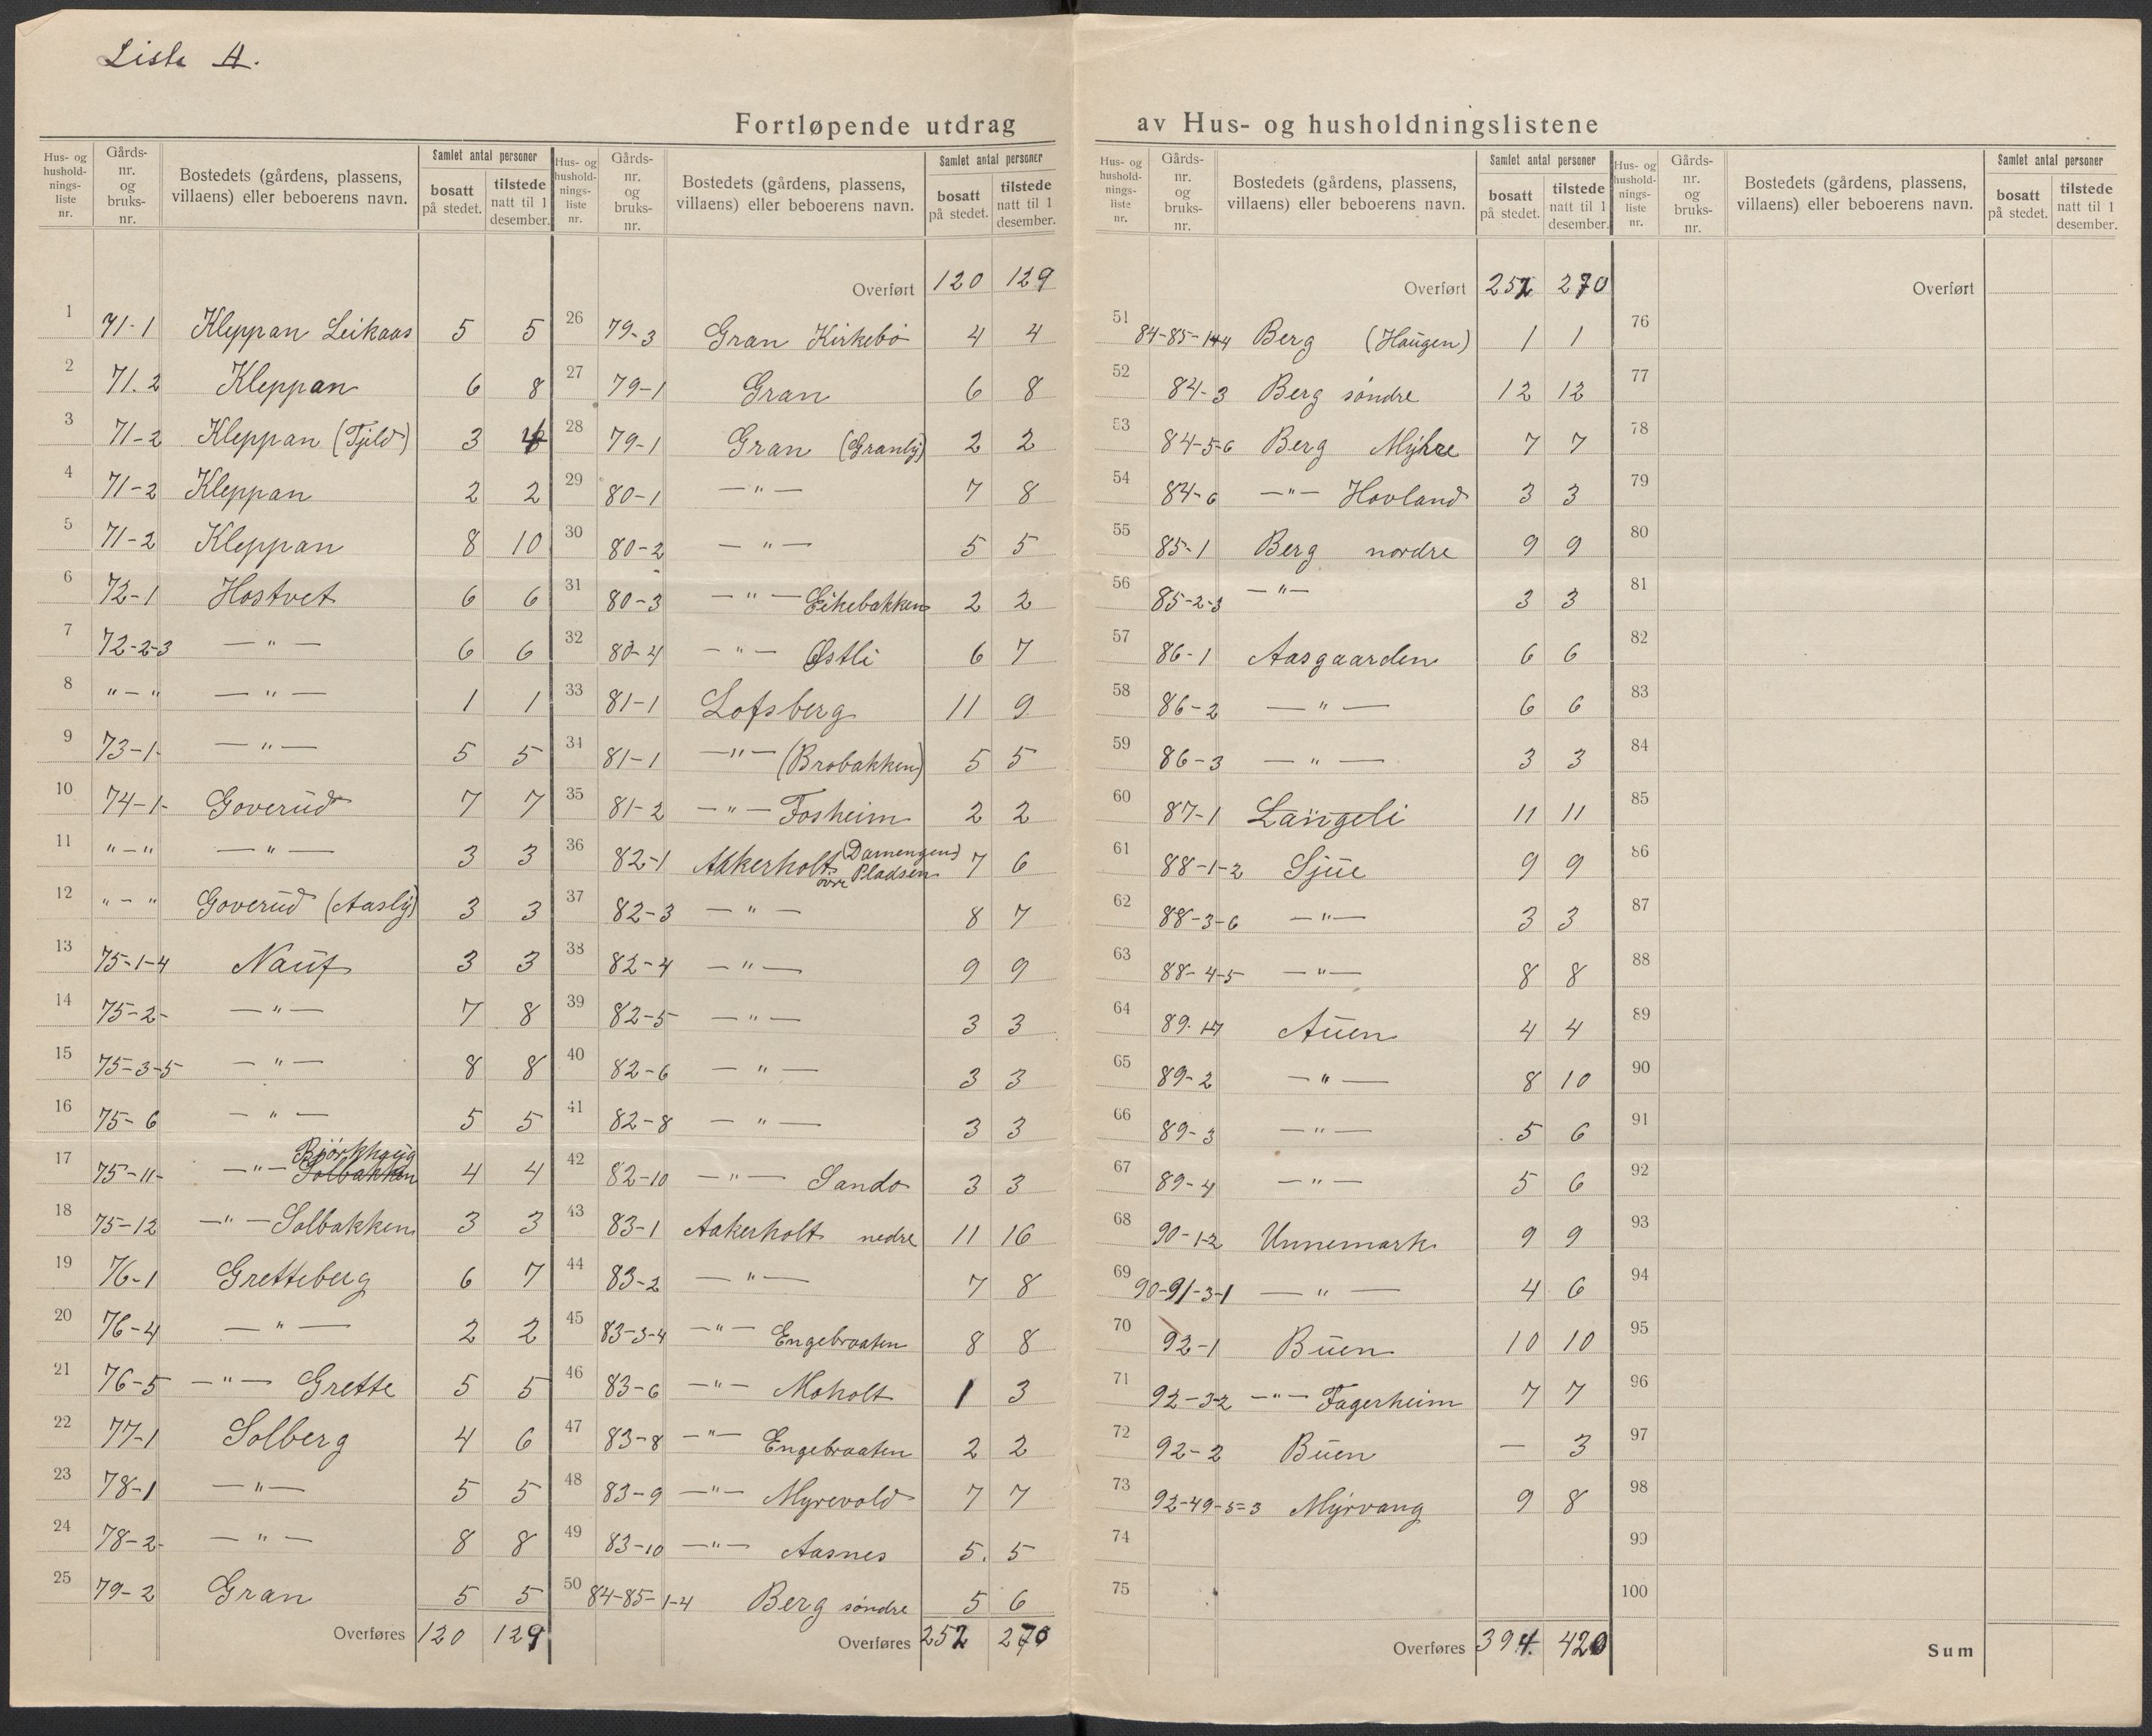 Liste A.
Fortløpende utdrag av Hus- og husholdningslistene
Hus- og husholdningsliste nr. | Gårds-nr. og bruks-nr. | Bostedets (gårdens, plassens, villaens) eller beboerens navn. | Samlet antal personer bosatt på stedet. | tilstede natt til 1 desember.
1 71-1 Kleppan Leikaas 5 5
2 71.2 Kleppan 6 8
3 71-2 Kleppan (Tjeld) 3
4 71-2 Kleppan 2 2
5 71-2 Kleppan 8 10
6 72-1 Hostvet 6 6
7 72-2-3 —"— 6 6
8 "—" —"— 1 1
9 73-1- —"— 5 5
10 74-1- Goverud 7 7
11 "—" —"— 3 3
12 "—" Goverud (Aasly) 3 3
13 75-1-4 Nauf 3 3
14 75-2- —"— 7 8
15 75-3-5 —"— 8 8
16 75-6 —"— 5 5
17 75-11- —"— Solbakken Björkhaug 4 4
18 75-12 —"— Solbakken 3 3
19 76-1 Gretteberg 6 7
20 76-4 —"— 2 2
21 76-5 —"— Grette 5 5
22 77-1 Solberg 4 6
23 78-1 —"— 5 5
24 78-2- —"— 8 8
25 79-2 Gran 5 5
Overføres 120 129
Hus- og husholdningsliste nr. | Gårds-nr. og bruks-nr. | Bostedets (gårdens, plassens, villaens) eller beboerens navn. | Samlet antal personer bosatt på stedet. | tilstede natt til 1 desember.
Overført 120 129
26 79-3 Gran Kirkebö 4 4
27 79-1 Gran 6 8
28 79-1 Gran (Granly) 2 2
29 80-1 —"— 7 8
30 80-2 —"— 5 5
31 80-3 —"— Eikebakken 2 2
32 80-4 —"— Østli 6 7
33 81-1 Lofsberg 11 9
34 81-1 —"— (Brobakken) 5 5
35 81-2 —"— Fosheim 2 2
36 82-1 Aakerholt övre (Damengens) Pladsen 7 6
37 82-3 —"— 8 7
38 82-4 —"— 9 9
39 82-5 —"— 3 3
40 82-6 —"— 3 3
41 82-8 —"— 3 3
42 82-10 —"— Sando 3 3
43 83-1 Aakerholt nedre 11 16
44 83-2 —"— 7 8
45 83-3-4 —"— Engebraaten 8 8
46 83-6 —"— Moholt 1 3
47 83-8 —"— Engebraaten 2 2
48 83-9 —"— Myrevold 7 7
49 83-10 —"— Aasnes 5. 5
50 84-85-1-4 Berg söndre 5 6
Overføres 252 270
Hus- og husholdningsliste nr. | Gårds-nr. og bruks-nr. | Bostedets (gårdens, plassens, villaens) eller beboerens navn. | Samlet antal personer bosatt på stedet. | tilstede natt til 1 desember.
Overført 252 270
51 84-85-1-4 Berg (Haugen) 1 1
52 84-3 Berg söndre 12 12
53 84-5-6 Berg Myhre 7 7
54 84-6 —"— Hovland 3 3
55 85-1 Berg nordre 9 9
56 85-2-3 —"— 3 3
57 86-1 Aasgaarden 6 6
58 86-2 —"— 6 6
59 86-3 —"— 3 3
60 87-1 Langeli 11 11
61 88-1-2 Sjue 9 9
62 88-3-6 —"— 3 3
63 88-4-5 —"— 8 8
64 Auen 4 4
65 89-2 —"— 8 10
66 89-3 —"— 5 6
67 89-4 —"— 5 6
68 90-1-2 Unnemark 9 9
69 90-91-3-1 —"— 4 6
70 92-1 Buen 10 10
71 92-3-2 —"— Fagerheim 7 7
72 92-2 Buen — 3
73 92-49-5=3 Myrvang 9 8
74
75
Overføres 394 420
Hus- og husholdningsliste nr. | Gårds-nr. og bruks-nr. | Bostedets (gårdens, plassens, villaens) eller beboerens navn. | Samlet antal personer bosatt på stedet. | tilstede natt til 1 desember.
Overført
76
77
78
79
80
81
82
83
84
85
86
87
88
89
90
91
92
93
94
95
96
97
98
99
100
Sum